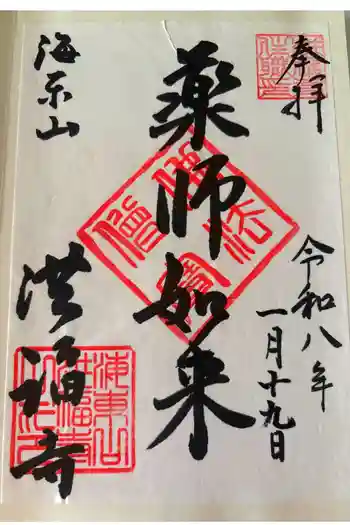 奉拝
令和八年
一月十九日
薬師如来
佛法僧寶
海东山
洪福寺
海東山
洪福寺